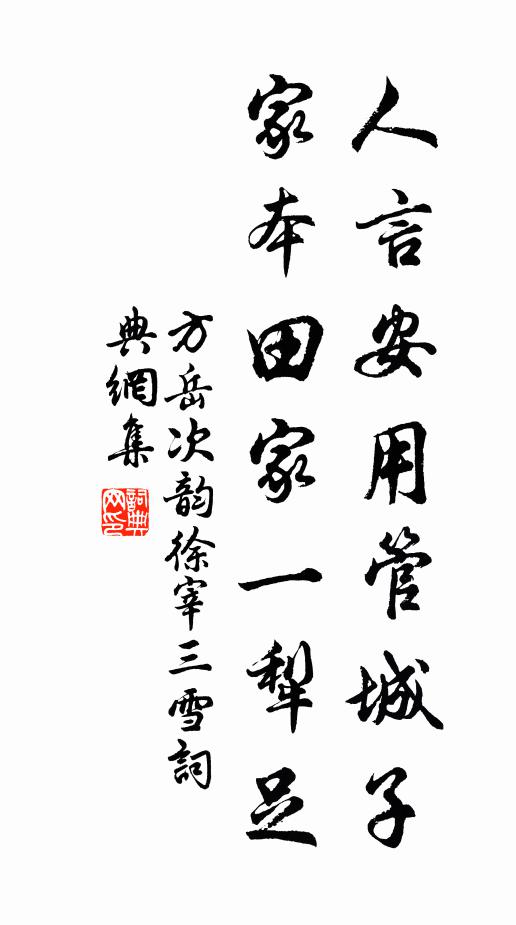 人言安用管城子
家本田家一犁足
方岳次韵徐宰三雪詞
典網集
詞典网印